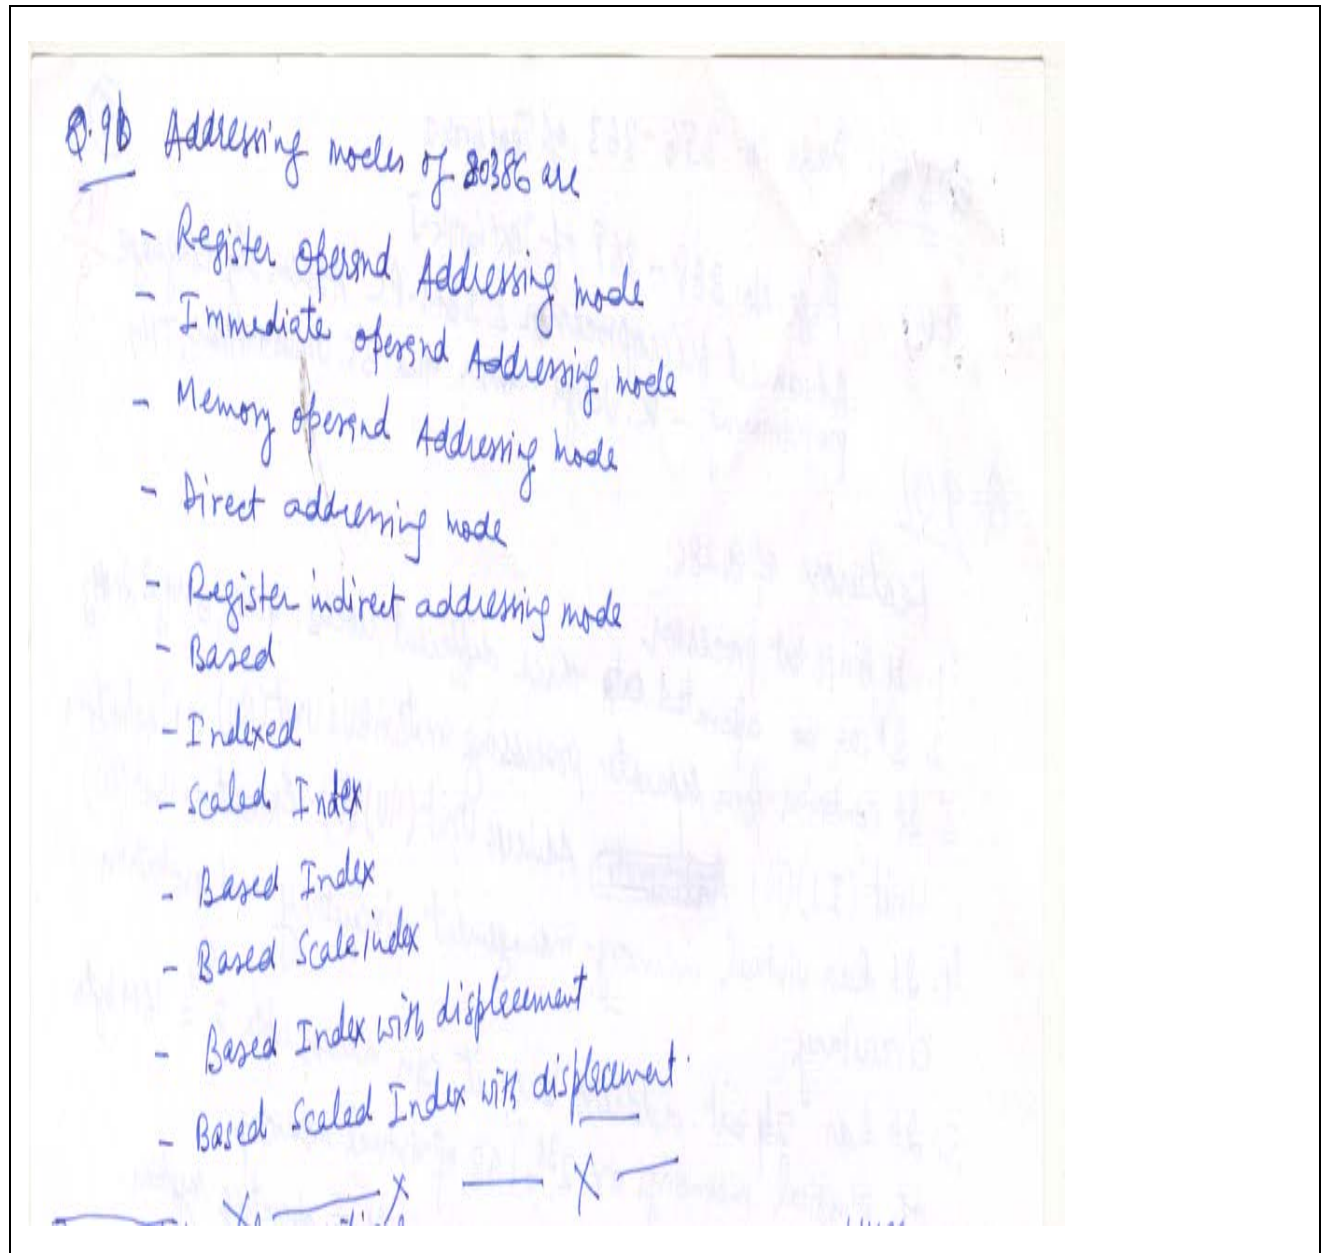 Q.9b Addressing modes of 80386 are
- Register operand Addressing mode
- Immediate operand Addressing mode
- Memory operand Addressing mode
- Direct addressing mode
- Register indirect addressing mode
- Based
- Indexed
- Scaled Index
- Based Index
- Based Scale index
- Based Index with displacement
- Based Scaled Index with displacement.